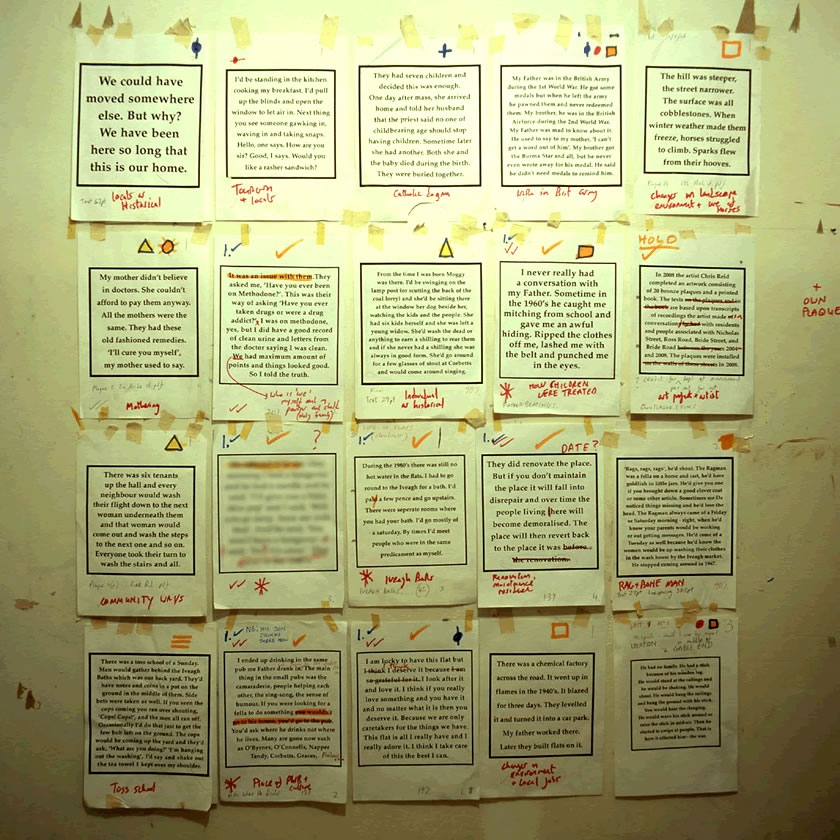 We could have
moved somewhere
else. But why?
We have been
here so long that
this is our home.
Locals w.
Historical
I'd be standing in the kitchen
cooking my breakfast. I'd pull
up the blinds and open the
window to let air in. Next thing
you see someone gawking in,
waving in and taking snaps.
Hello, one says. How are you
sir? Good, I says. Would you
like a rasher sandwich?
Tourism
+ locals
They had seven children and
decided this was enough.
One day after mass, she arrived
home and told her husband
that the priest said no one of
childbearing age should stop
having children. Sometime later
she had another. Both she and
the baby died during the birth.
They were buried together.
Catholic Dogma
My Father was in the British Army
during the 1st World War. He got some
medals but when he left the army
he pawned them and never redeemed
them. My brother, he was in the British
Airforce during the 2nd World War.
My Father was mad to know about it.
He used to say to my mother, 'I can't
get a word out of him'. My brother got
the Burma Star and all, but he never
even wrote away for his medal. He said
he didn't need medals to remind him.
in Brit army
The hill was steeper,
the street narrower.
The surface was all
cobblestones. When
winter weather made them
freeze, horses struggled
to climb. Sparks flew
from their hooves.
changes in landscape
environment + use of
horses
My mother didn't believe
in doctors. She couldn't
afford to pay them anyway.
All the mothers were the
same. They had these
old fashioned remedies.
'I'll cure you myself',
my mother used to say.
Mothering
It was an issue with them. They
asked me, 'Have you ever been
on Methodone?'. This was their
way of asking 'Have you ever
taken drugs or were you a drug
addict?' I was on methodone,
yes, but I did have a good record
of clean urine and letters from
the doctor saying I was clean.
We had maximum amount of
points and things looked good.
So I told the truth.
Who is 'we'
myself and my
partner and child
(only family)
From the time I was born Moggy
was there. I'd be swinging on the
lamp post (or scutting the back of the
coal lorry) and she'd be sitting there
at the window her dog beside her,
watching the kids and the people. She
had six kids herself and she was left a
young widow. She'd wash the dead or
anything to earn a shilling to rear them
and if she never had a shilling she was
always in good form. She'd go around
for a few glasses of stout at Corbetts
and would come around singing.
Individual
w historical
I never really had
a conversation with
my Father. Sometime in
the 1960's he caught me
mitching from school and
gave me an awful
hiding. Ripped the clothes
off me, lashed me with
the belt and punched me
in the eyes.
HOW CHILDREN
WERE TREATED
HOLD
In 2008 the artist Chris Reid
completed an artwork consisting
of 20 bronze plaques and a printed
book. The texts on the plaques and in
the book are based upon transcripts
of recordings the artist made of
conversations with residents
and people associated with Nicholas
Street, Ross Road, Bride Street, and
Bride Road between the years 2004
and 2008. The plaques were installed
on the walls of these streets in 2008.
art project + artist
+
OWN
PLAQUE
There was six tenants
up the hall and every
neighbour would wash
their flight down to the next
woman underneath them
and that woman would
come out and wash the steps
to the next one and so on.
Everyone took their turn to
wash the stairs and all.
COMMUNITY WAYS
?
During the 1980's there was still no
hot water in the flats. I had to go
round to the Iveagh for a bath. I'd
paid a few pence and go upstairs.
There were seperate rooms where
you had your bath. I'd go mostly of
a Saturday. By times I'd meet
people who were in the same
predicament as myself.
Iveagh Baths
DATE?
They did renovate the place.
But if you don't maintain
the place it will fall into
disrepair and over time the
people living there will
become demoralised. The
place will then revert back
to the place it was before
the renovation.
Renovation,
maintenance
139
4.
'Rags, rags, rags', he'd shout. The Ragman
was a fella on a horse and cart, he'd have
goldfish in little jars. He'd give you one
if you brought down a good clover coat
or some other article. Sometimes me Da
noticed things missing and he'd lose the
head. The Ragman always came of a Friday
or Saturday morning - right, when he'd
know your parents would be working
or out getting messages. He'd come of a
Tuesday as well because he'd know the
women would be up washing their clothes
in the wash house by the Iveagh market.
He stopped coming around in 1967.
RAG + BONE MAN
There was a toss school of a Sunday.
Men would gather behind the Iveagh
Baths which was our back yard. They'd
have notes and coins in a pot on the
ground in the middle of them. Side
bets were taken as well. If you seen the
cops coming you ran over shouting,
'Cops! Cops!', and the men all ran off.
Occasionally I'd do that just to get the
few bob left on the ground. The cops
would be coming up the yard and they'd
ask, 'What are you doing?' 'I'm hanging
out the washing', I'd say and shake out
the tea towel I kept over my shoulder.
Toss school
I ended up drinking in the same
pub me Father drank in. The main
thing in the small pubs was the
camaraderie, people helping each
other, the sing-song, the sense of
humour. If you were looking for a
fella to do something you wouldn't
go to his house, you'd go to the pub.
You'd ask where he drinks not where
he lives. Many are gone now such
as O'Byrnes, O'Connells, Napper
Tandy, Corbetts, Graces,
Place of Pub +
culture
I am lucky to have this flat but
I think I deserve it because I am
so grateful for it. I look after it
and love it. I think if you really
love something and you have it
and no matter what it is then you
deserve it. Because we are only
caretakers for the things we have.
This flat is all I really have and I
really adore it. I think I take care
of this the best I can.
192
There was a chemical factory
across the road. It went up in
flames in the 1940's. It blazed
for three days. They levelled
it and turned it into a car park.
My father worked there.
Later they built flats on it.
changes in
environment
+ local jobs
GABLE END
He had no family. He had a stick
because of his wooden leg.
He would stand at the railings and
he would be shaking. He would
shout. He would bang the railings
and bang the ground with his stick.
You would hear the clanging.
He would wave his stick around or
raise the stick in midair. Then he
started to swipe at people. That is
how it affected him - the war.